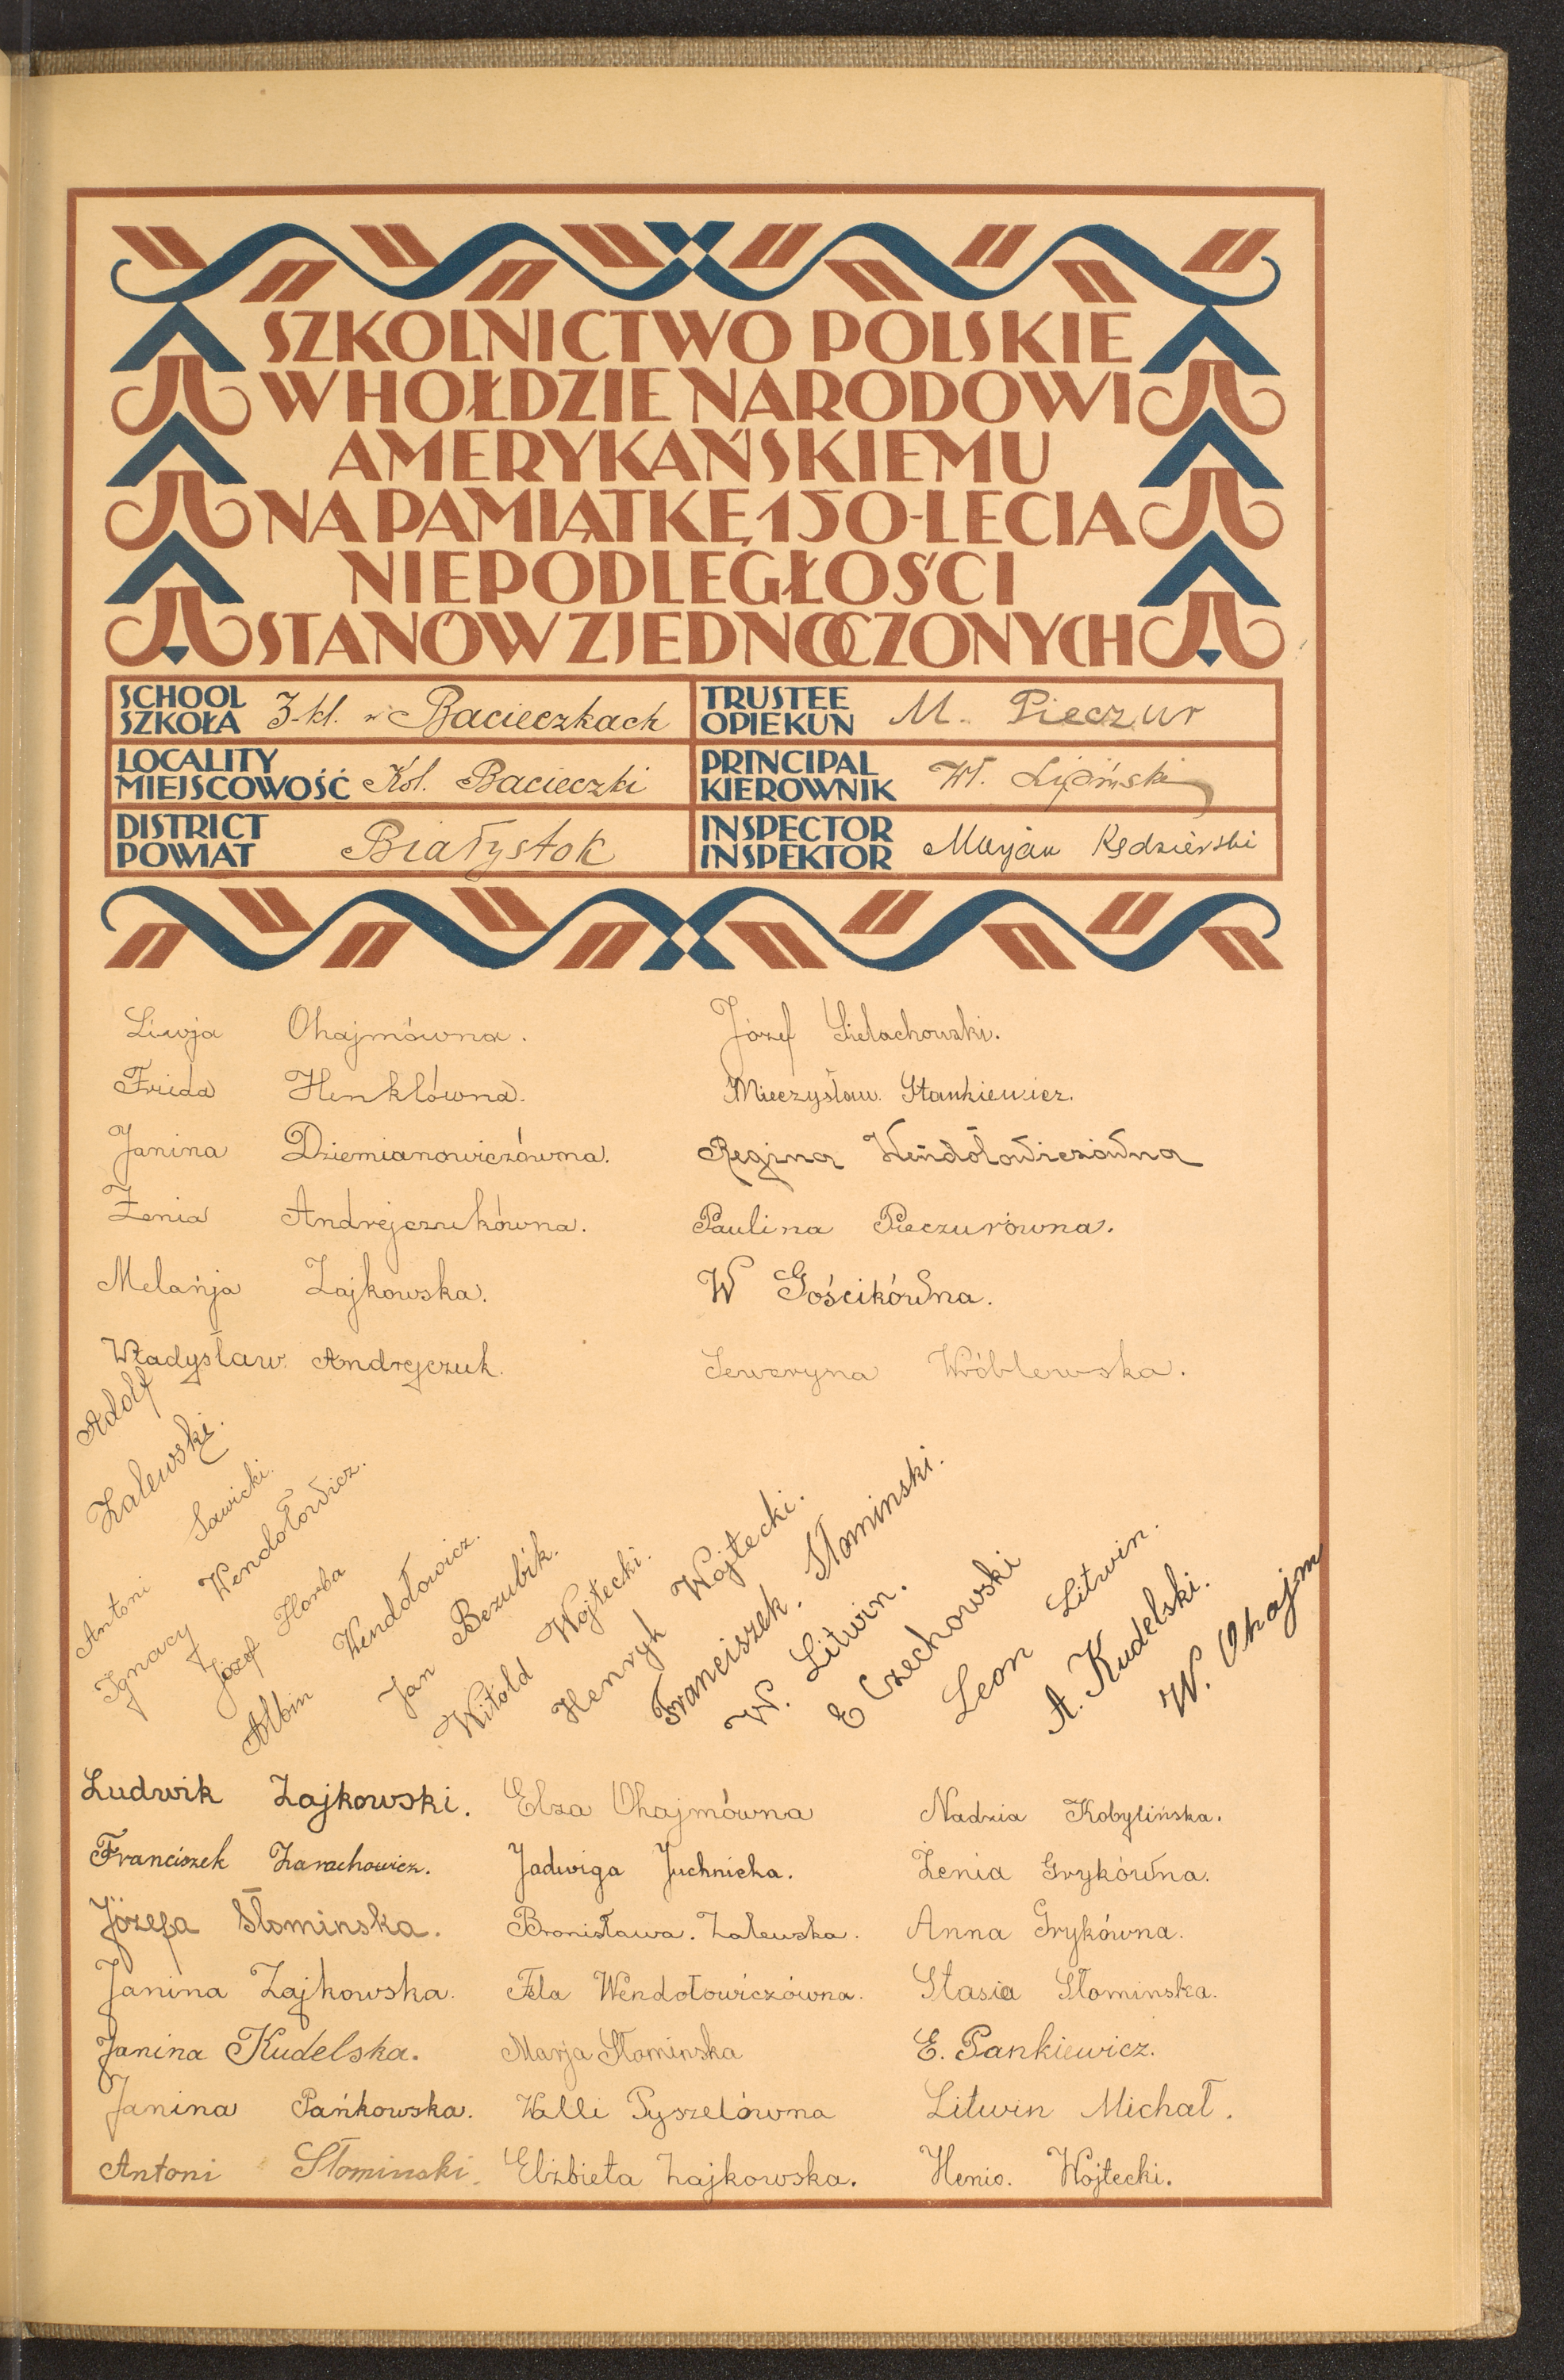 SZKOLNICTWO POLSKIE
W HOŁDZIE NARODOWI
AMERYKAŃSKIEMU
NA PAMIĄTKĘ 150-LECIA
NIEPODLEGŁOŚCI
STANÓW ZJEDNOCZONYCH
SCHOOL SZKOŁA 3-kl. w Bacieczkach
TRUSTEE OPIEKUN M. Pieczur
LOCALITY MIEJSCOWOŚĆ Kol. Bacieczki
PRINCIPAL KIEROWNIK Wł. Lipiński
DISTRICT POWIAT Białystok
INSPECTOR INSPEKTOR Marjan Kędzierski
Liwja Ohajmówna.
Frida Henklówna.
Janina Dziemianowiczówna.
Żenia Andrejczukówna.
Melańja Zajkowska.
Władysław Andrejczuk.
Józef Sielachowski.
Mieczysław Stankiewicz.
Regina Wendołowiczówna
Paulina Pieczurówna.
W Gościkówna.
Seweryna Wróblewska.
Adolf Zalewski.
Antoni Sawicki.
Ignacy Wendołowicz.
Józef Horba
Albin Wendołowicz.
Jan Bezubik.
Witold Wojtecki.
Henryk Wojtecki.
Franciszek. Słominski.
W. Litwin.
E Czechowski
Leon Litwin.
A. Kudelski.
W. Ohajm
Ludwik Zajkowski.
Franciszek Zarachowicz.
Józefa Słominska.
Janina Zajkowska.
Janina Kudelska.
Janina Pańkowska.
Antoni Słominski.
Elza Ohajmówna
Jadwiga Juchnicka.
Bronisława. Zalewska.
Fela Wendołowiczówna.
Marja Słominska
Walli Pyszelówna
Elżbieta Zajkowska.
Nadzia Kobylińska.
Żenia Grykówna.
Anna Grykówna.
Stasia Słominska.
E. Pankiewicz.
Litwin Michał.
Henio. Wojtecki.